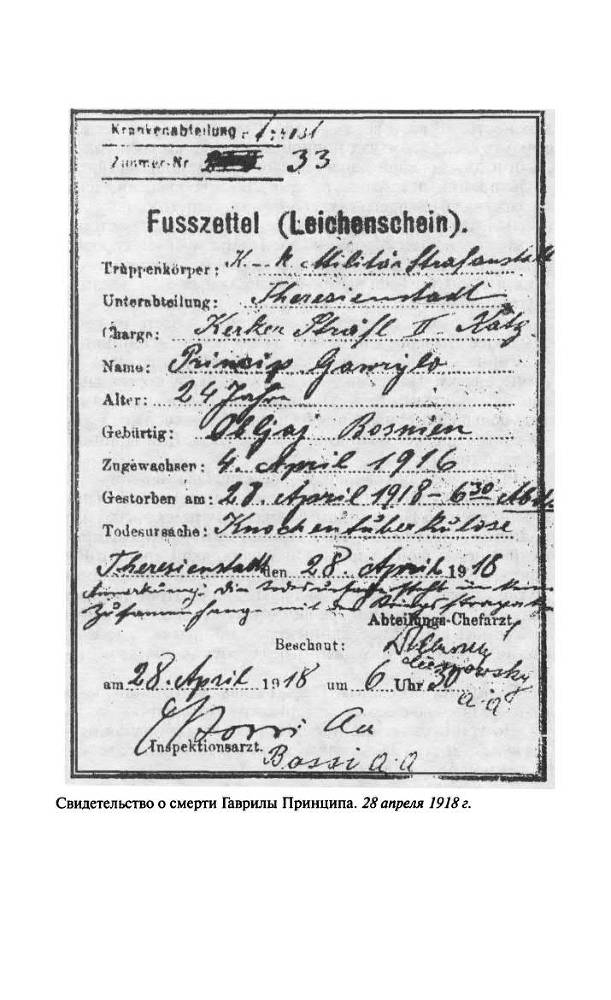 Krankenabteilung
Zimmer-Nr 33
Fusszettel (Leichenschein).
Truppenkörper: K. k. Militär Strafanstalt
Unterabteilung: Theresienstadt
Charge: Kerker Sträfl II Katg.
Name: Princip Gawrylo
Alter: 24 Jahre
Gebürtig: Obljaj Bosnien
Zugewachsen: 4. April 1916
Gestorben am: 28. April 1918 - 6 30 Abd.
Todesursache: Knochentuberkulose
Theresienstadt den 28. April 1918
Anmerkung: Die Todesursache steht in keinem
Zusammenhange mit den
Abteilungs-Chefarzt.
Beschaut:
am 28. April 1918 um 6 Uhr 30
a.a
Inspektionsarzt.
Bossi a.a
Свидетельство о смерти Гаврилы Принципа. 28 апреля 1918 г.